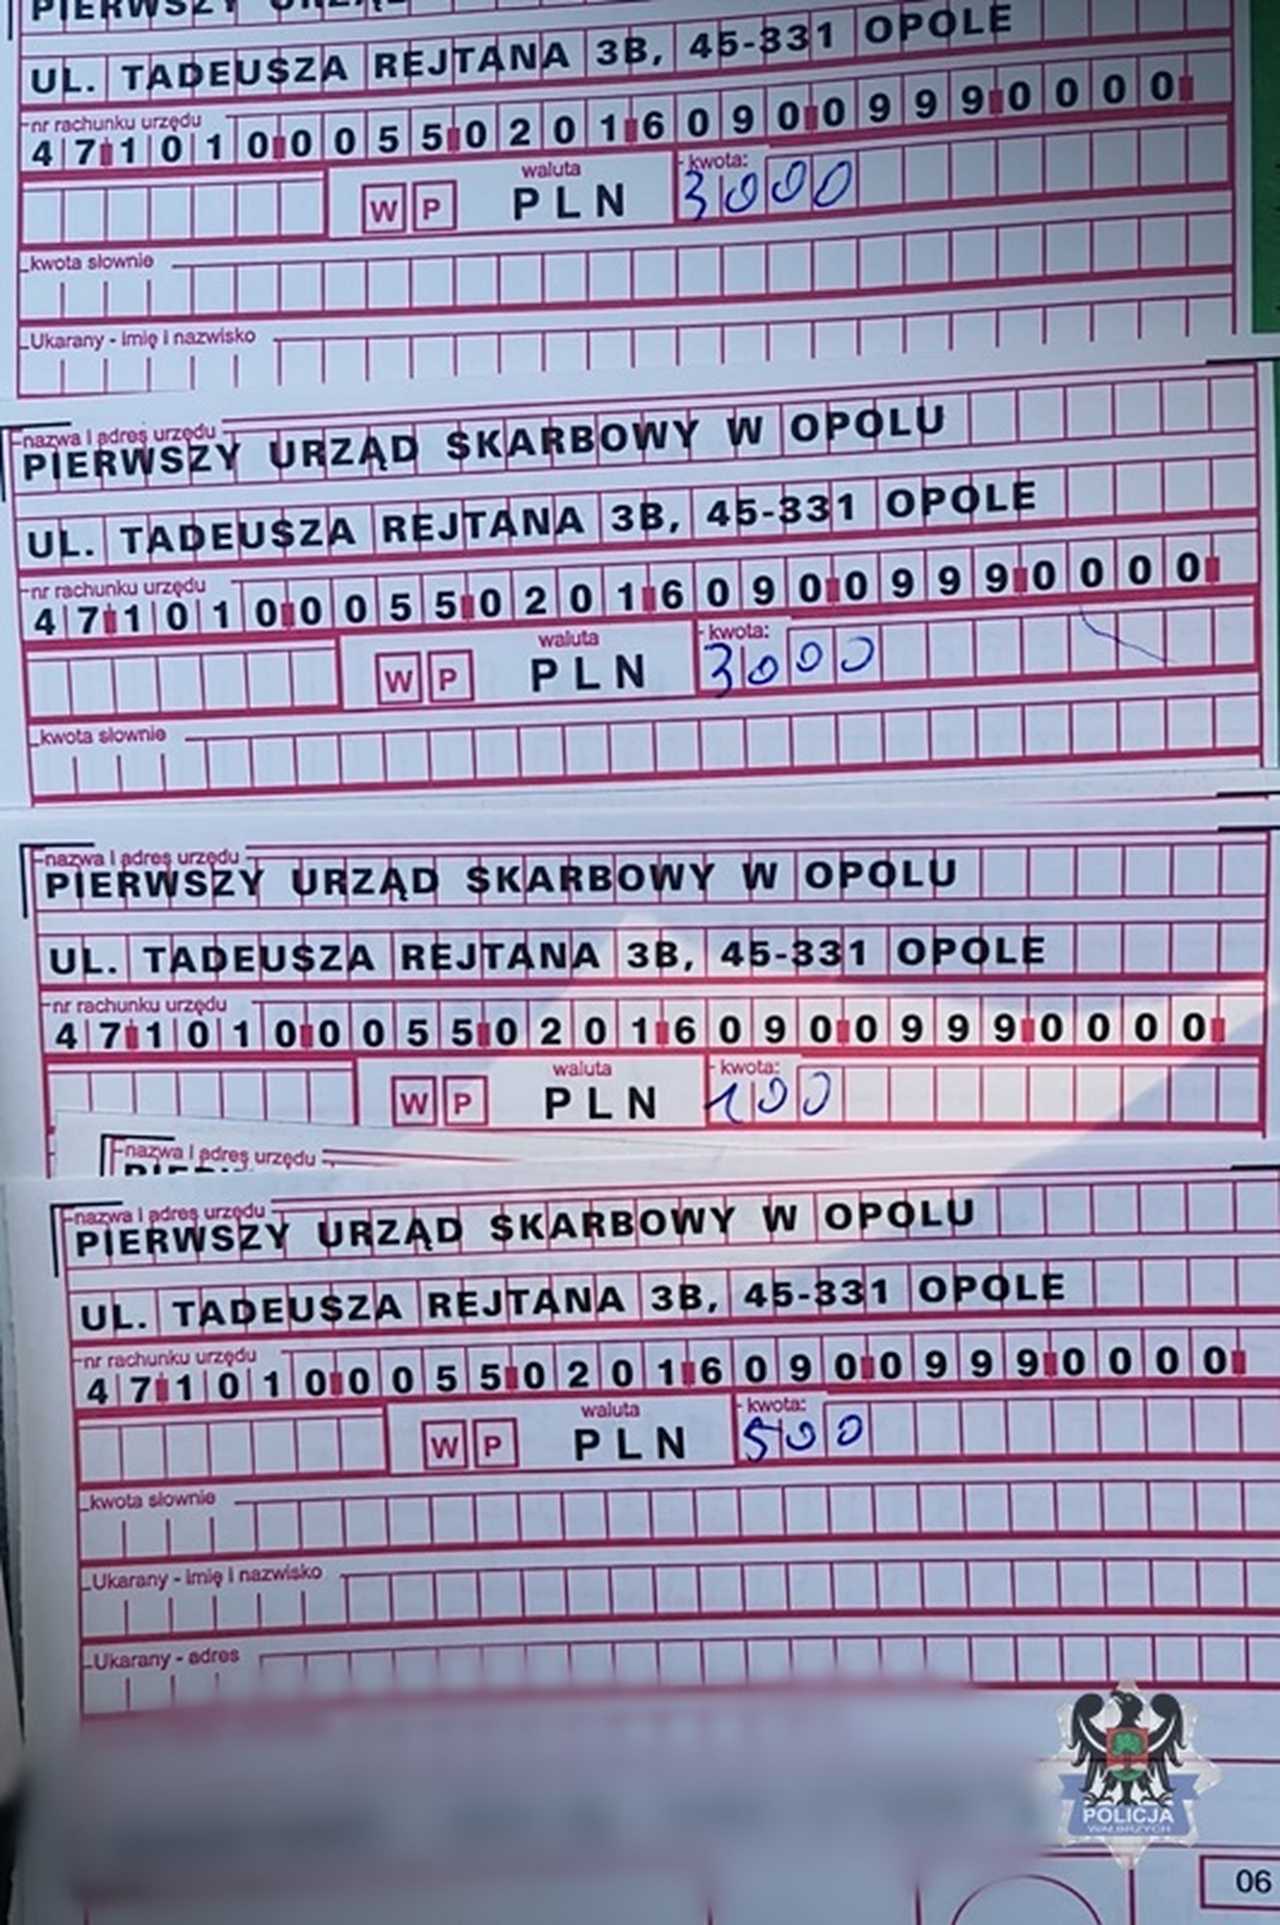 PIERWSZY URZĄD
UL. TADEUSZA REJTANA 3B, 45-331 OPOLE
nr rachunku urzędu
47 1010 0055 0201 6090 0999 0000
waluta
kwota:
W P PLN 3000
kwota słownie
Ukarany - imię i nazwisko
nazwa i adres urzędu
PIERWSZY URZĄD SKARBOWY W OPOLU
UL. TADEUSZA REJTANA 3B, 45-331 OPOLE
nr rachunku urzędu
47 1010 0055 0201 6090 0999 0000
waluta
kwota:
W P PLN 3000
kwota słownie
nazwa i adres urzędu
PIERWSZY URZĄD SKARBOWY W OPOLU
UL. TADEUSZA REJTANA 3B, 45-331 OPOLE
nr rachunku urzędu
47 1010 0055 0201 6090 0999 0000
waluta
kwota:
W P PLN 100
nazwa i adres urzędu
nazwa i adres urzędu
PIERWSZY URZĄD SKARBOWY W OPOLU
UL. TADEUSZA REJTANA 3B, 45-331 OPOLE
nr rachunku urzędu
47 1010 0055 0201 6090 0999 0000
waluta
kwota:
W P PLN 500
kwota słownie
Ukarany - imię i nazwisko
Ukarany - adres
POLICJA
WAŁBRZYCH
06